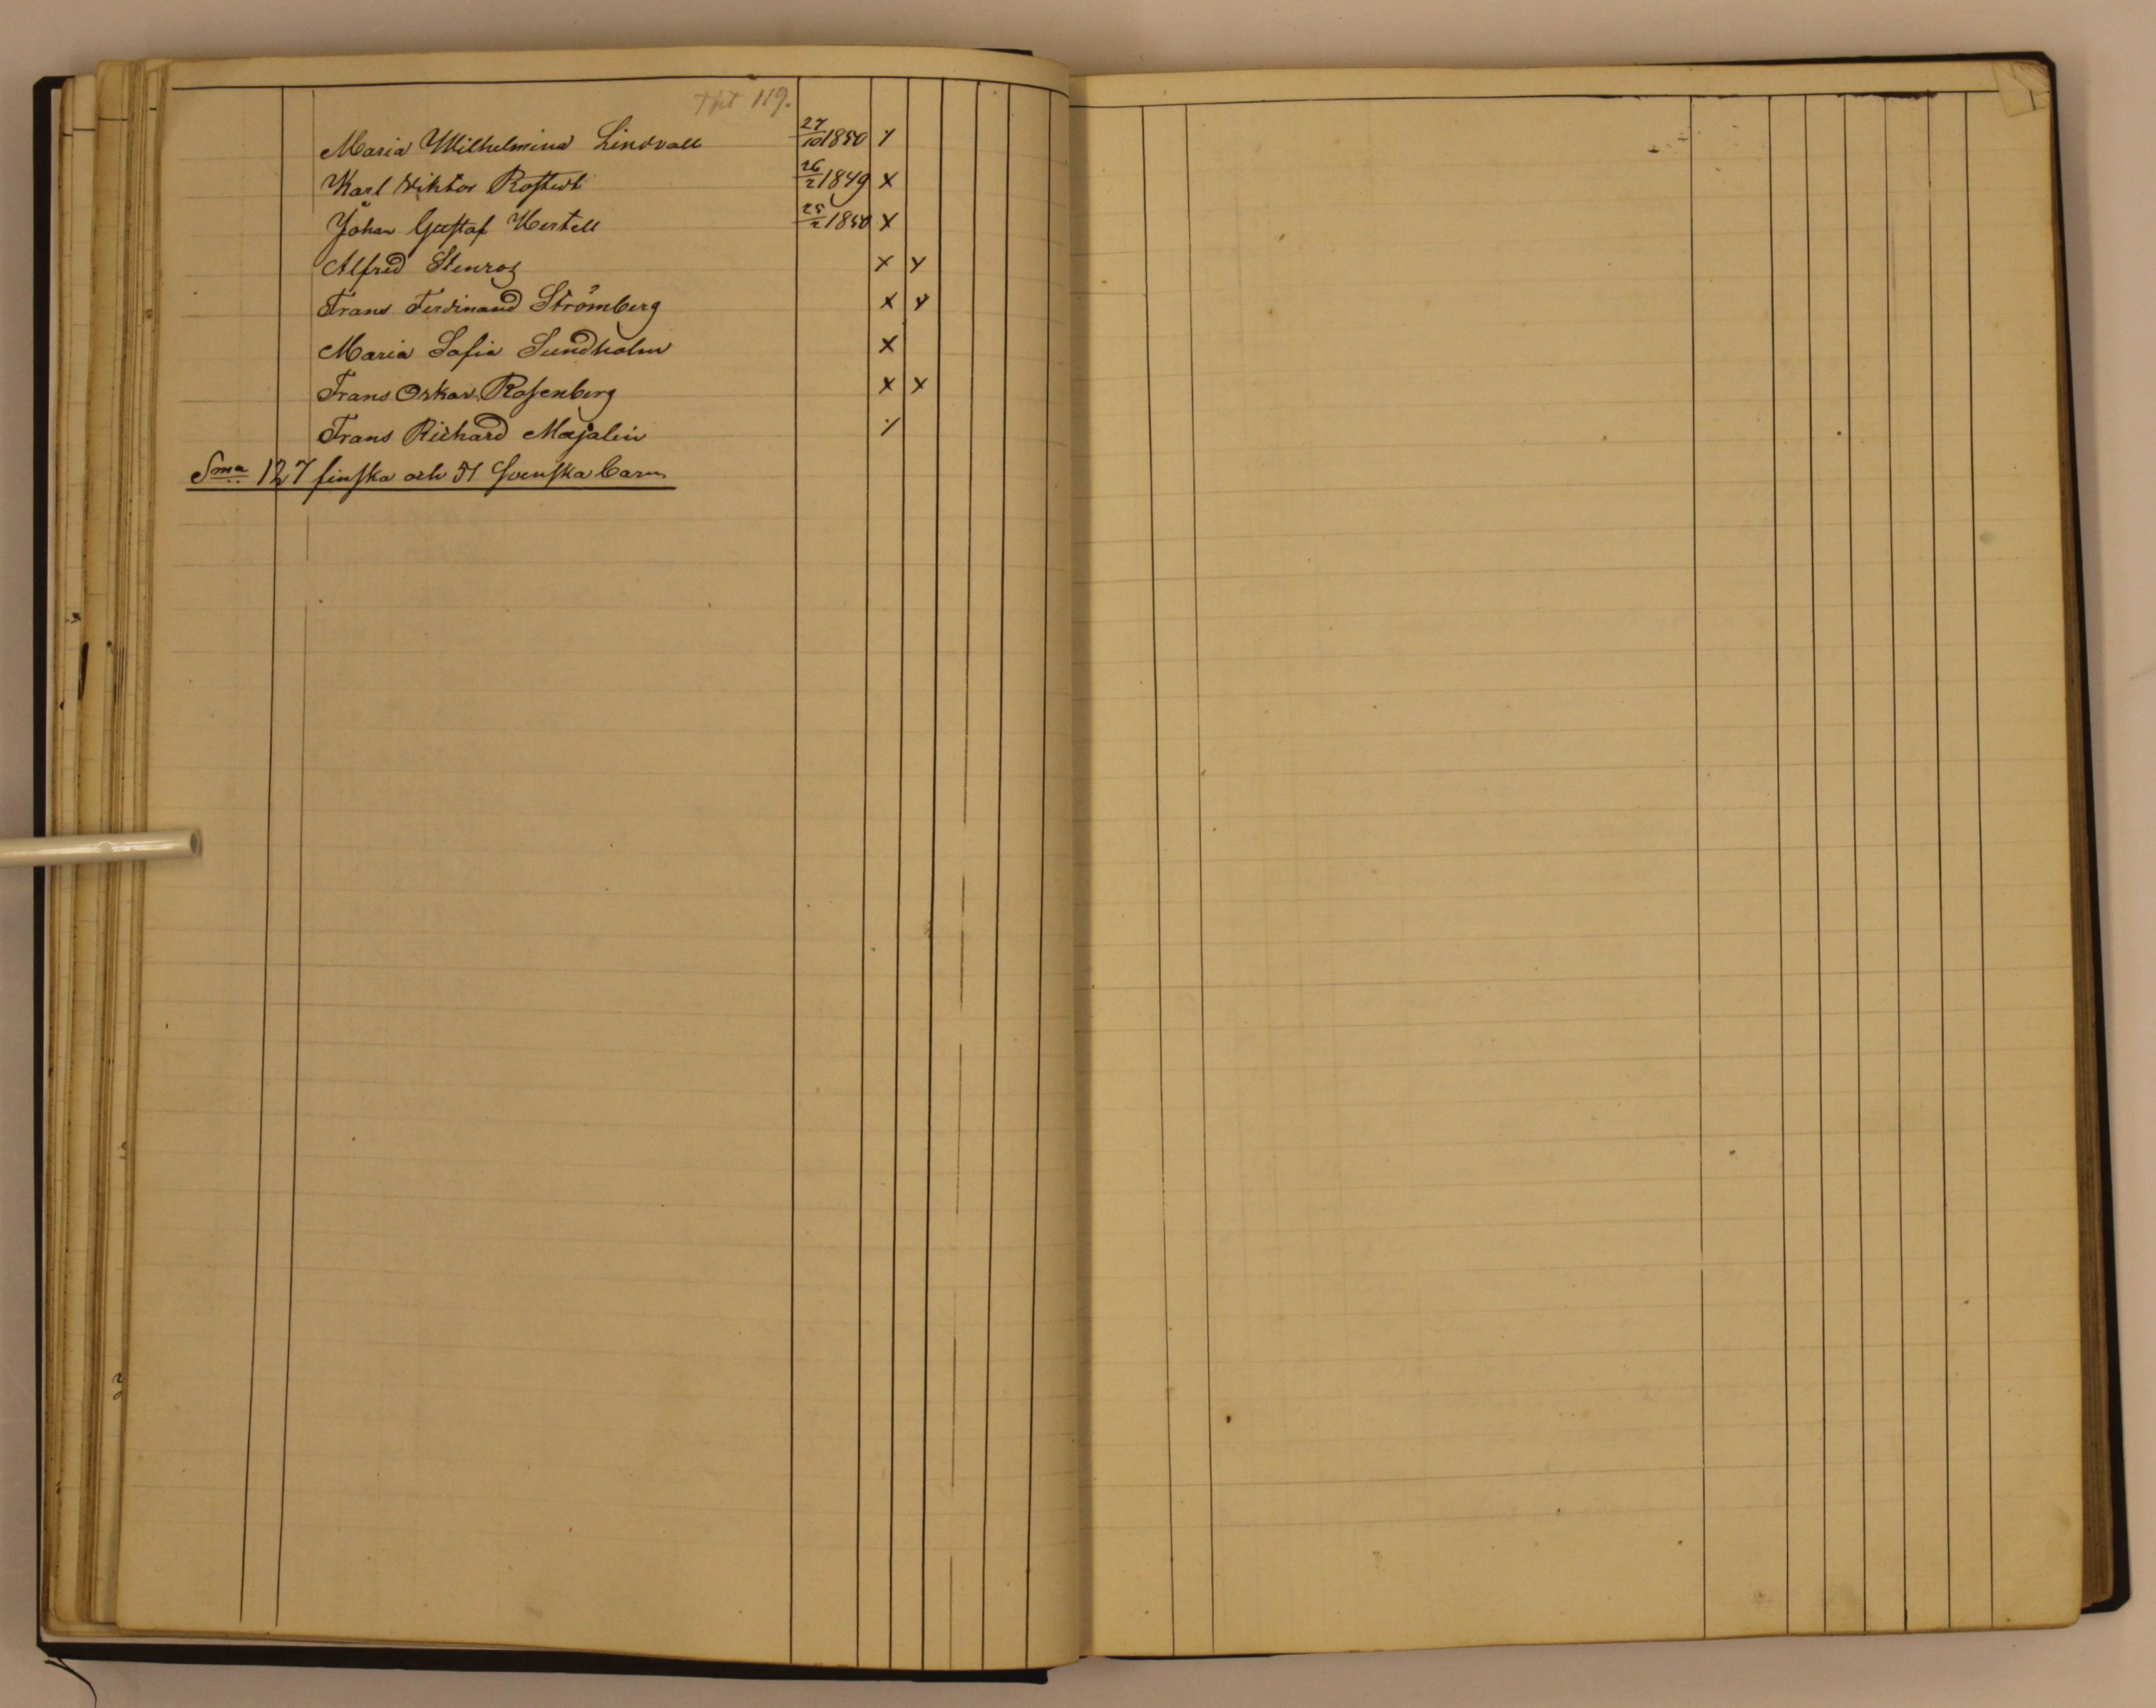 119.
Maria Wilhelmina Lindvall 27/10 1850 x
Karl Viktor Rostedt 26/2 1849 x
Johan Gustaf Hertell 25/2 1850 x
Alfred Stenros x x
Frans Ferdinand Strömberg x x
Maria Sofia Sundholm x
Frans Oskar Rosenberg x x
Frans Richard Majalin
Sma 127 finska och 51 Svenska barn